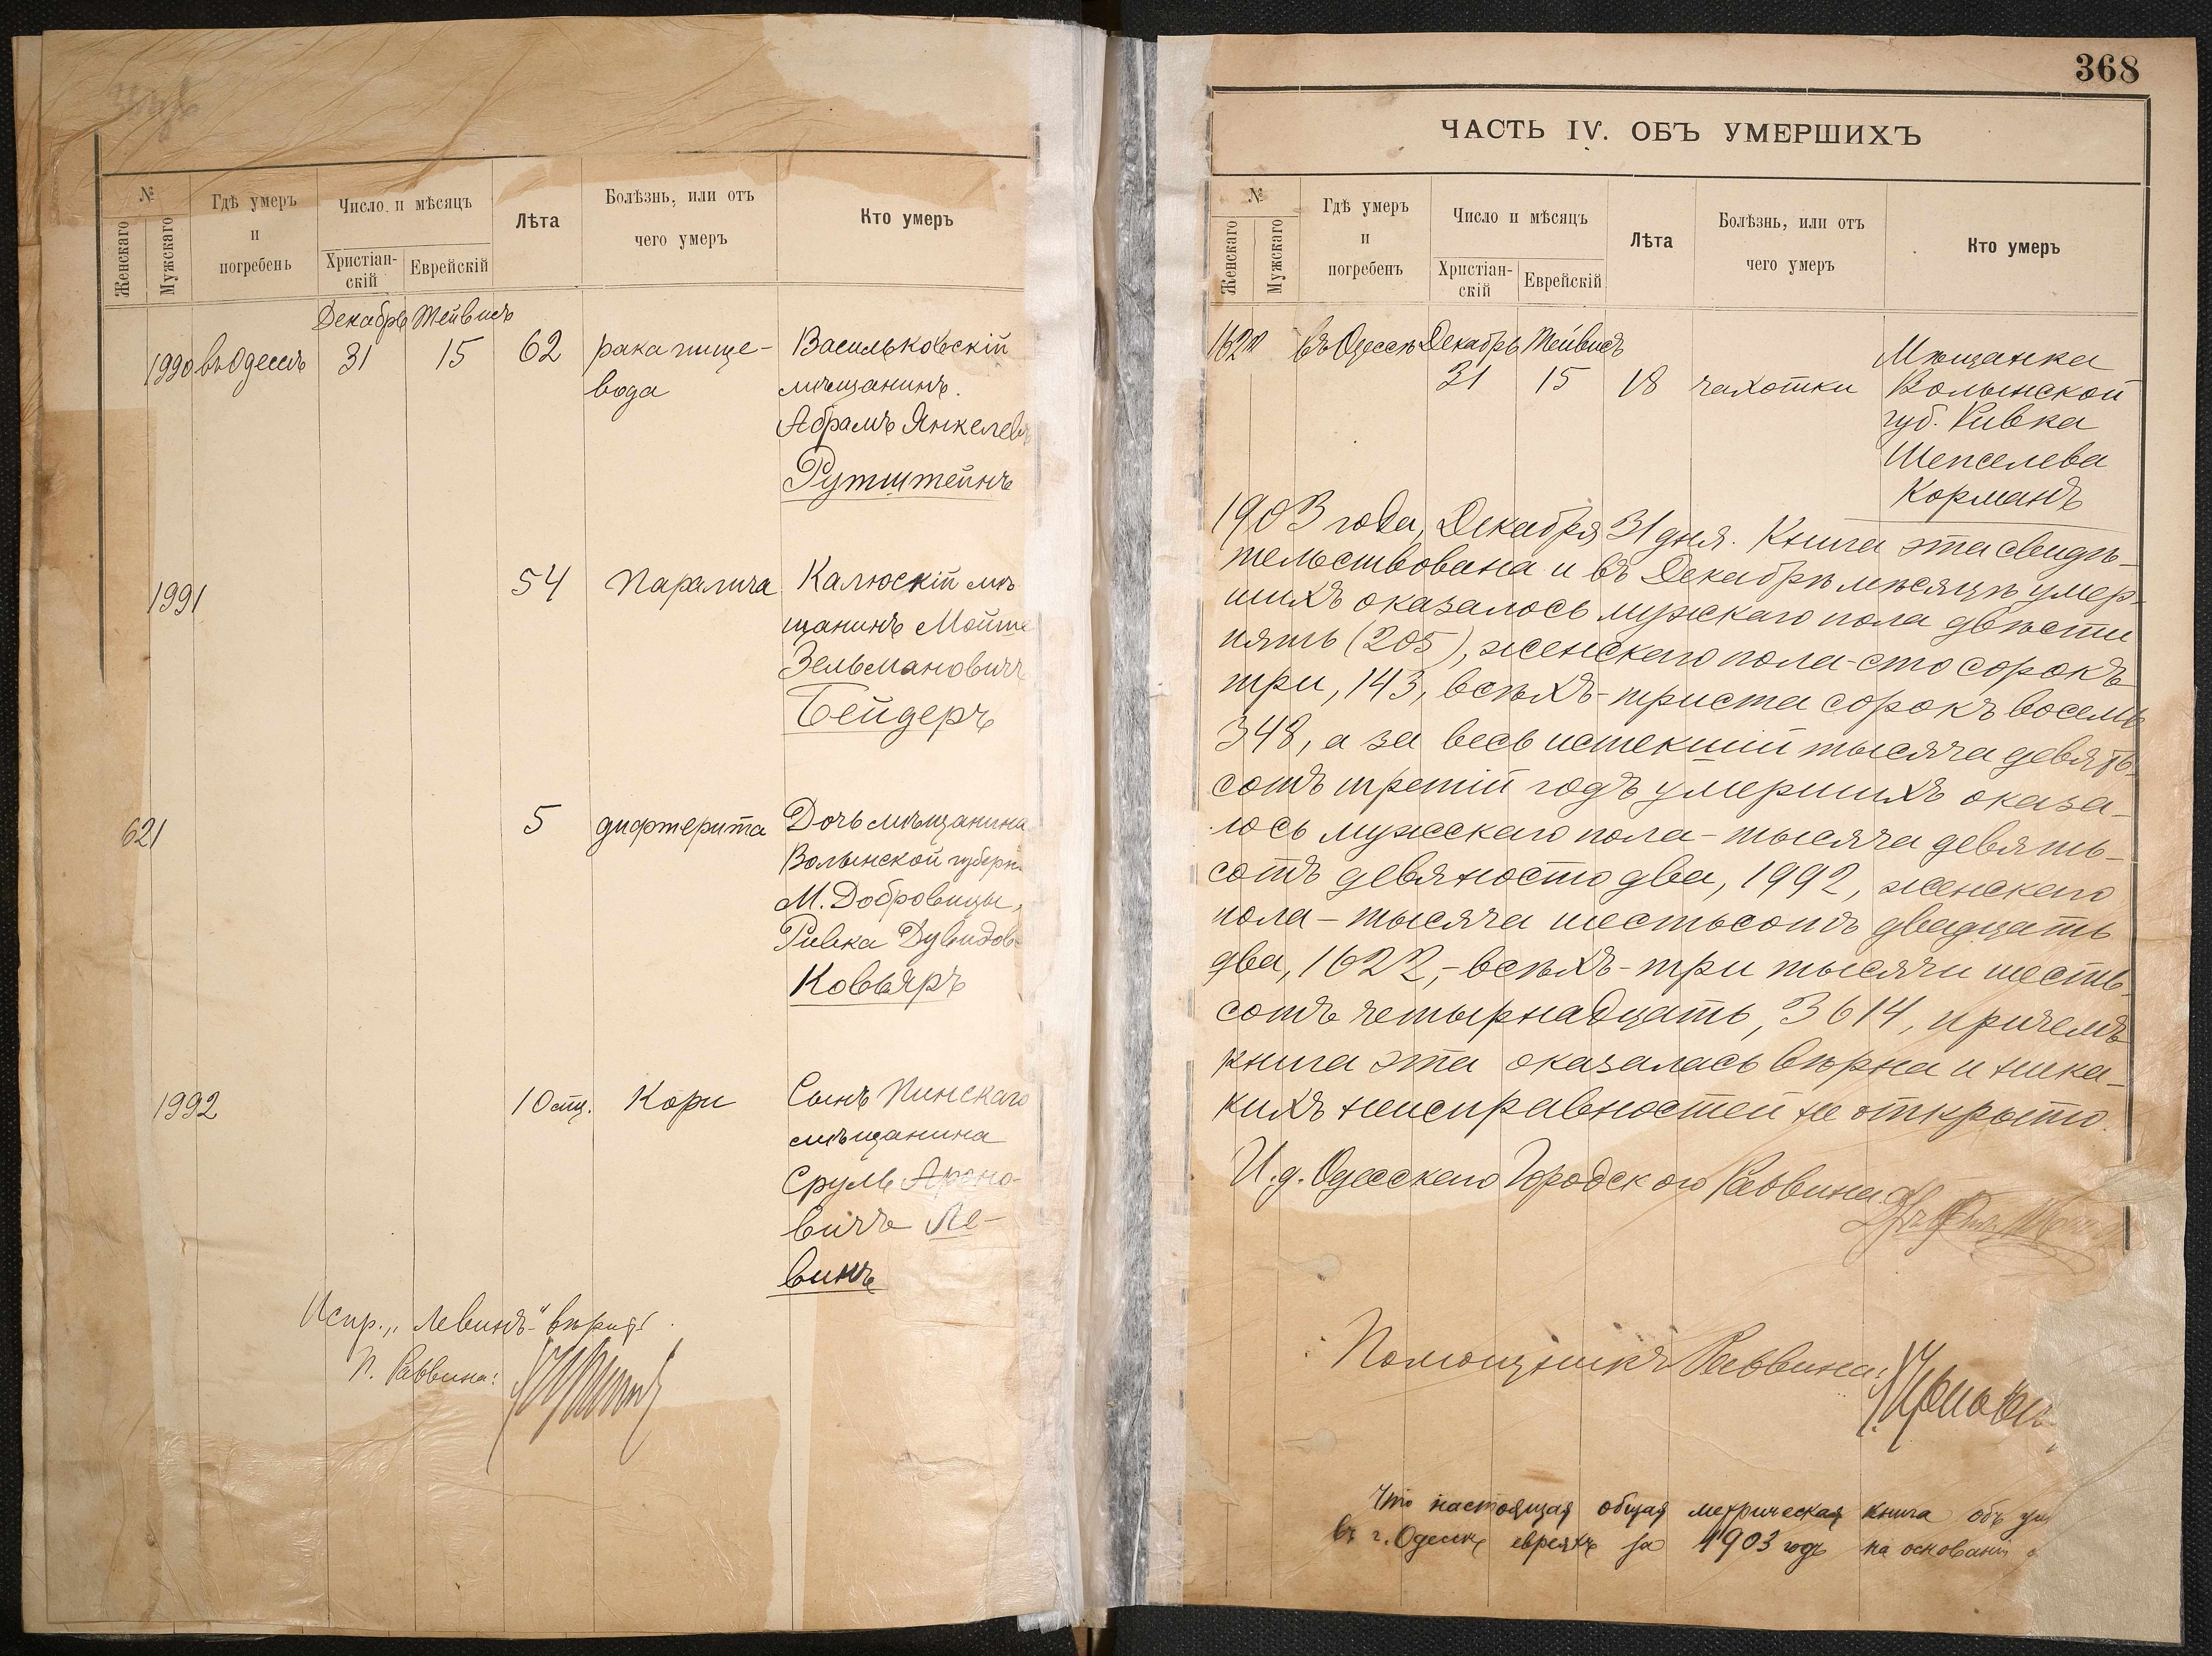 №
Женскаго
Мужскаго
Гдѣ умеръ
и
погребенъ
Число и мѣсяцъ
Христіан-
скій
Еврейскій
Лѣта
Болѣзнь, или отъ
чего умеръ
Кто умеръ
Декабрь Тейвисъ
1990 въ Одессѣ 31 15 62 рака пище- Васильковскій
вода мѣщанинъ
Абрамъ Янкелев
Рутштейнъ
1991 54 Паралича Калюскій мѣ
щанинъ Мойше
Зельмановичъ
Бейдеръ
621 5 дифтерита Дочь мѣщанина
Волынской губерн.
М. Домбровицы,
Ривка Дувидов
Ковьяръ
1992 10 мѣс. Кори Сынъ Пинскаго
мѣщанина
Сруль Ароно-
вичъ Ле-
винъ
Испр. „Левинъ" вѣрно!
П. Раввина:
368
ЧАСТЬ IV. ОБЪ УМЕРШИХЪ
№
Женскаго
Мужскаго
Гдѣ умеръ
и
погребенъ
Число и мѣсяцъ
Христіан-
скій
Еврейскій
Лѣта
Болѣзнь, или отъ
чего умеръ
Кто умеръ
1622 въ Одессѣ Декабрь Тейвисъ Мѣщанка
31 15 18 чахотки Волынской
губ. Ривка
Шепселева
Корманъ
1903 года, Декабря 31 дня. Книга эта свидѣ-
тельствована и въ Декабрѣ мѣсяцѣ умер-
шихъ оказалось мужскаго пола двѣсти
пять (205), женскаго пола - сто сорокъ
три, 143, всѣхъ - триста сорокъ восемь
348, а за весь истекшій тысяча девять-
сотъ третій годъ умершихъ оказа-
лось мужскаго пола - тысяча девять-
сотъ девяносто два, 1992, женскаго
пола - тысяча шестьсотъ двадцать
два, 1622, - всѣхъ - три тысячи шесть-
сотъ четырнадцать, 3614, причемъ
книга эта оказалась вѣрна и ника-
кихъ неисправностей не открыто.
И. д. Одесскаго Городского Раввина
Помощникъ Раввина:
Что настоящая общая метрическая книга объ ум
въ г. Одессѣ евреяхъ за 1903 годъ на основаніи